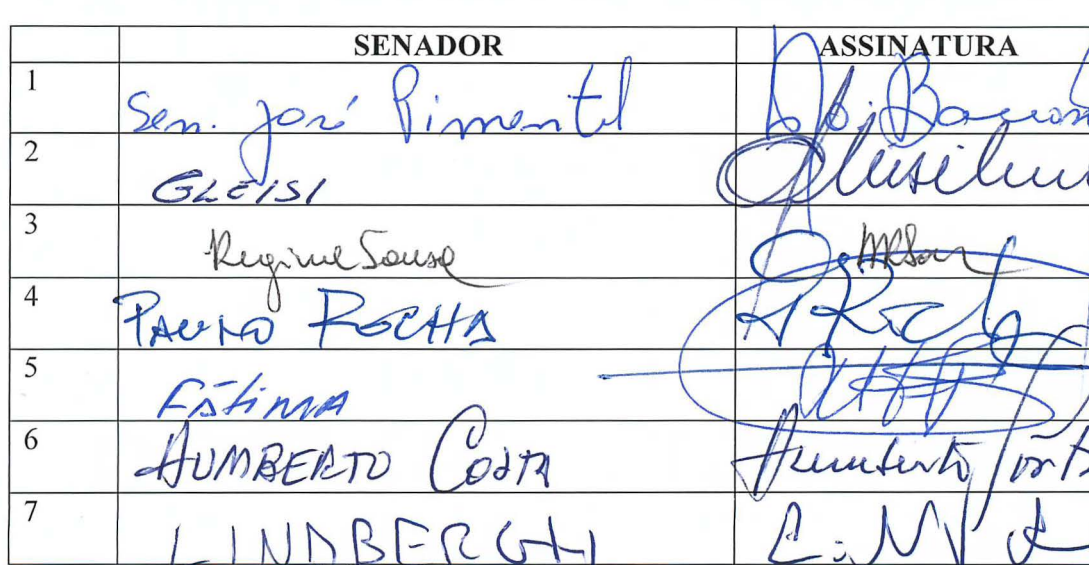 SENADOR ASSINATURA
1 Sen. José Pimentel
2 GLEISI
3 Regina Sousa
4 PAULO ROCHA
5 FÁTIMA
6 HUMBERTO COSTA Humberto Costa
7 LINDBERGH